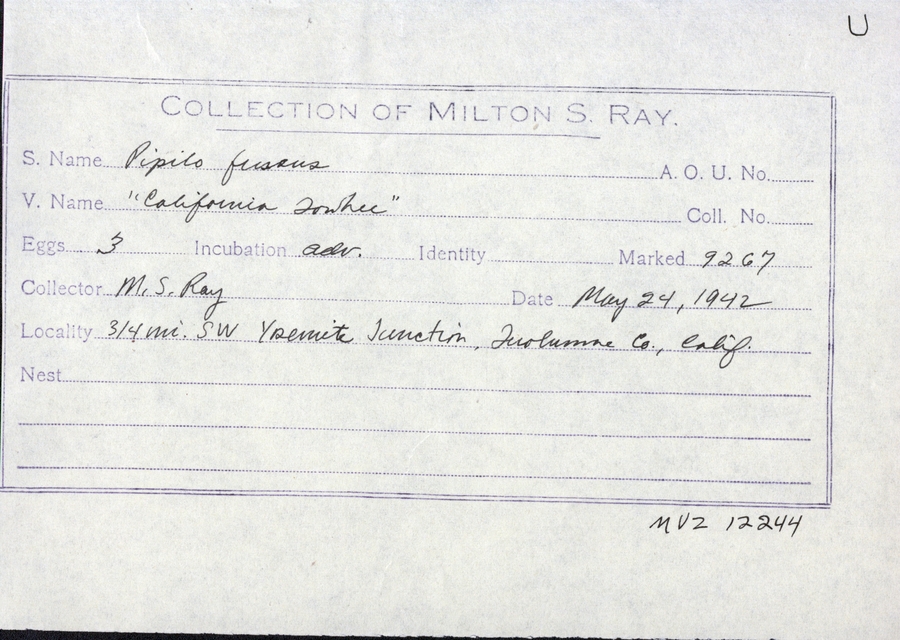 U
COLLECTION OF MILTON S. RAY.
S. Name Pipilo fuscus A. O. U. No.
V. Name "California Towhee" Coll. No.
Eggs 3 Incubation adv. Identity Marked 9267
Collector M. S. Ray Date May 24, 1942
Locality 3/4 mi. SW Yosemite Junction, Tuolumne Co., Calif.
Nest
MVZ 12244